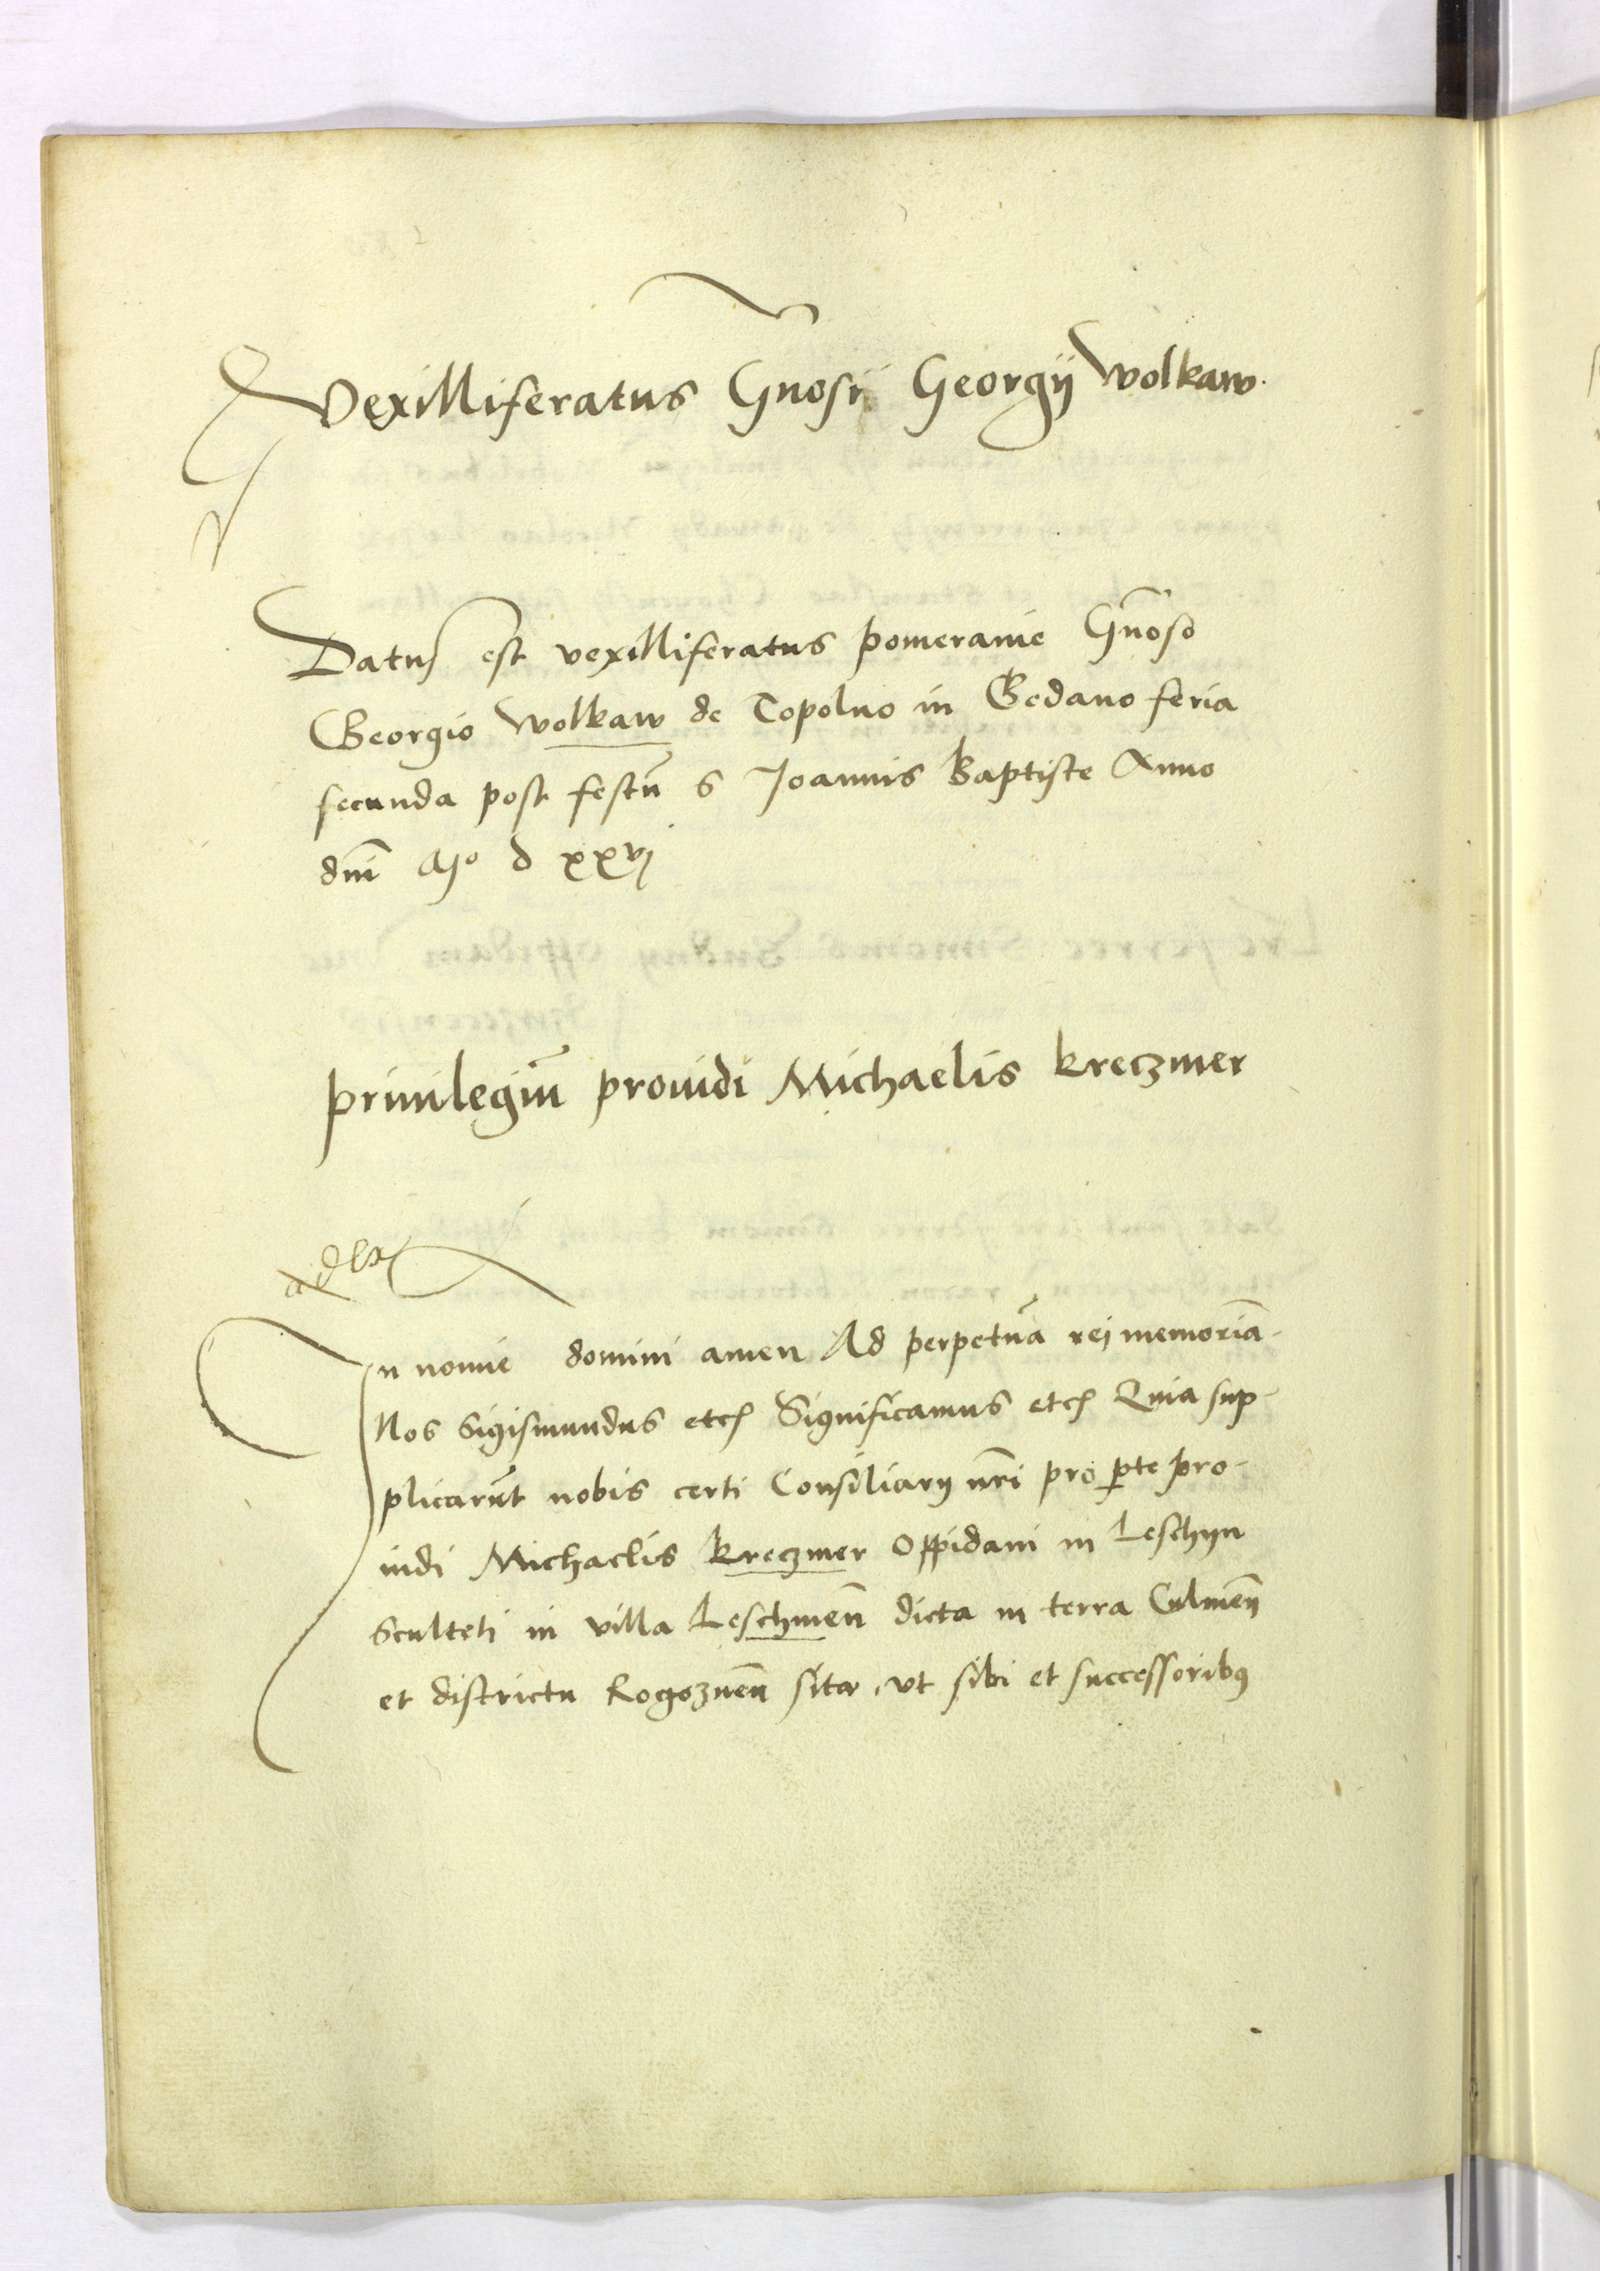 Vexilliferatus Gn̄osi Georgij Wolkaw.
Datus est vexilliferatus pomeranie Gn̄oso
Georgio Wolkaw de Topolno in Gedano feria
secunda post festū S Joannis Baptiste Anno
dn̄i Mo d xxvj
priuilegiū prouidi Michaelis kreczmer
In noīe domini amen Ad perpetuā rei memoriā.
Nos Sigismundus etc Significamus etc Quia sup-
plicarūt nobis certi Consiliarij nr̄i pro pte pro-
uidi Michaelis kreczmer oppidani in Leschyn
Sculteti in villa Leschmen̄ dicta in terra Culmen̄
et districtu Rogoznen̄ sita, vt sibi et successoribus